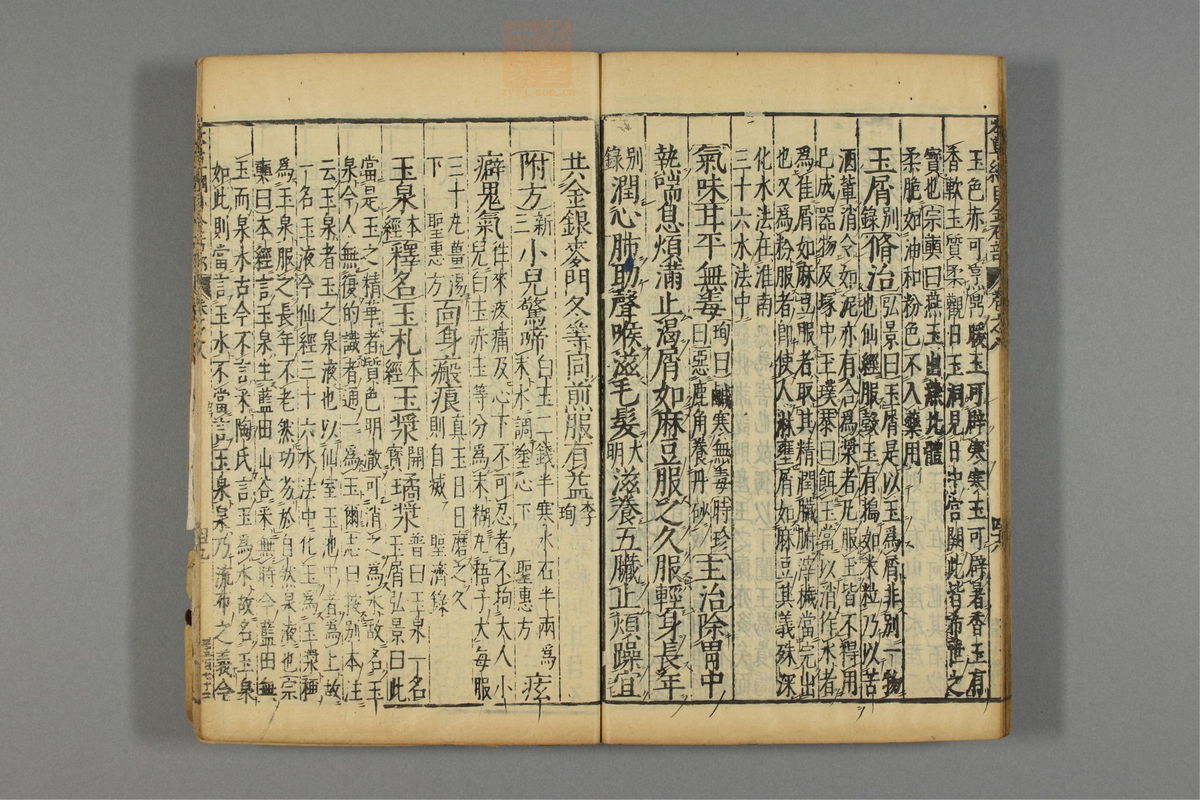 本草綱目金石部 卷之八 四十八
玉色亦可烹鼎暖玉可辟寒寒玉可辟暑香玉有
香軟玉質柔觀日玉洞見日中宮闕此皆希世之
寳也宗奭曰燕玉出燕北體
柔脆如油和粉色不入藥用
玉屑別録脩治弘景曰玉屑是以玉為屑非別一物
也仙經服瑴玉有搗如米粒乃以苦
酒輩消令如泥亦有合為漿者凡服玉皆不得用
已成器物及塚中玉璞恭曰餌玉當以消作水者
為佳屑如麻豆服者取其精潤臟腑滓穢當完出
也又為粉服者即使人淋壅屑如麻豆其義殊深
化水法在淮南
三十六水法中
氣味甘平無毒珣曰鹹寒無毒時珍曰惡鹿角養丹砂主治除胃中
熱喘息煩滿止渴屑如麻豆服之久服輕身長年
別録潤心肺助聲喉滋毛髮大明滋養五臟止煩躁宜
共金銀麥門冬等同煎服有益李珣
附方新三小兒驚啼白玉二錢半寒水石半兩為末水調塗心下 聖惠方痃
癖鬼氣往來疼痛及心下不可忍者不拘大人小兒白玉赤玉等分為末糊丸梧子大每服
三十丸薑湯下 聖惠方面身瘢痕真玉日日磨之久則自滅 聖濟録
玉泉本經釋名玉札本經玉漿開寳璚漿普曰玉泉一名玉屑弘景曰此
當是玉之精華者質色明澈可消之為水故名玉
泉今人無復的識者通一為玉爾志曰按別本注
云玉泉者玉之泉液也以仙室玉池中者為上故
一名玉液今仙經三十六水法中化玉為玉漿稱
為玉泉服之長年不老然功劣於自然泉液也宗
奭曰本經言玉泉生藍田山谷采無時今藍田無
玉而泉水古今不言采陶氏言玉為水故名玉泉
如此則當言玉水不當言玉泉泉乃流布之義今